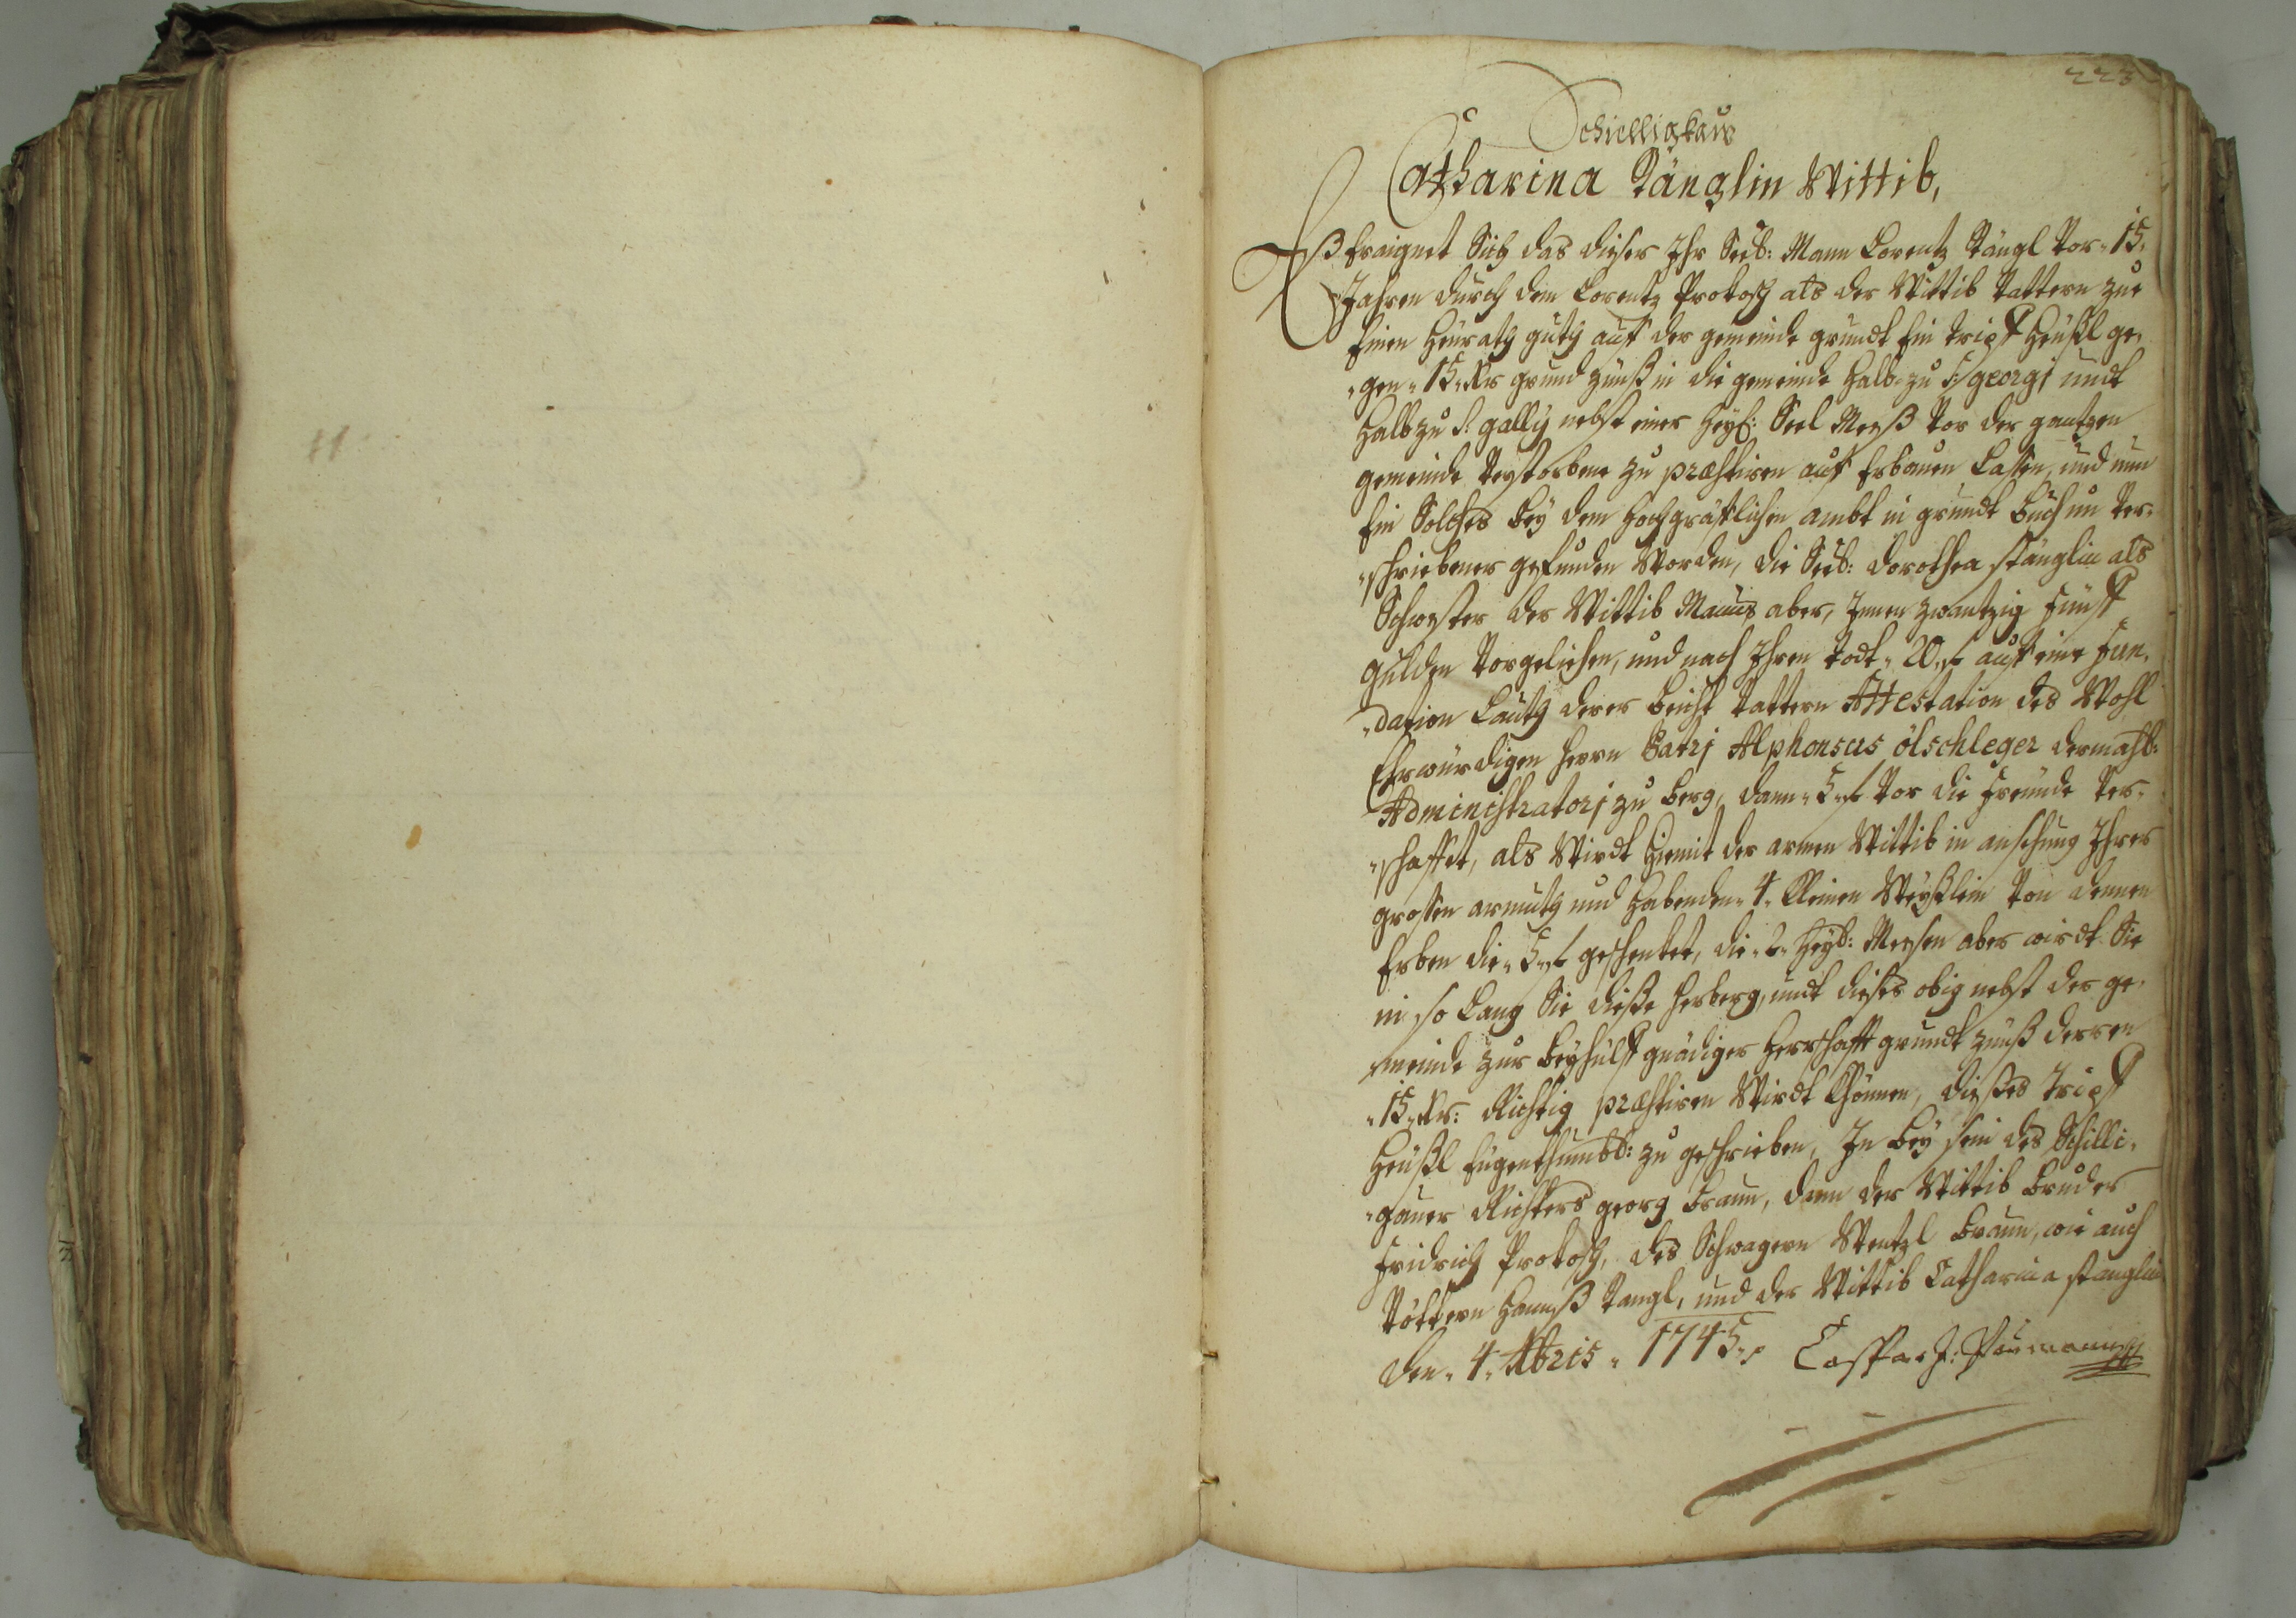 223
Schielligkau
Catharina Tänglin Wittib,
Eß Eraignet Sich das dieser Ihr Seel: Mann Lorentz Tängl Vor „ 15 „
Jahren durch dem Lorentz Prokosch als der Wittib Vattern zue
Einen Heürath guth auf der gemeinde grundt Ein tripf Heüßl ge„
„gen „ 15 „ Kr grund zünß in die gemeinde Halb zu S: georgj undt
Halb zu S: gally nebst einer Heyl: Seel Meeß Vor der gantzen
gemeinde Verstorbene zu præstiren auf Erbauen Lassen, und nun
Ein Solches bey dem Hochgräflichen ambt in grundt Buch un Ver„
„schriebener gefunden Worden, die Seel: Dorothea stänglin als
Schwester der Wittib Manns aber, Innen zwantzig Fünf
gulden Vorgeliehen, und nach Ihren todt „ 20 „ f auf eine Fun„
„dation Lauth derer Beicht Vattern Attestation des Wohl
Ehrwürdigen Herrn Patrj Alphonsus ölschleger dermahl:
Administratorj zu Berg, dann „ 5 „ f Vor die Freünde Ver„
„schaffet, als Wirdt Hiemit der armen Wittib in ansehung Ihrer
grossen armuth und Habenden „ 4 „ Kleinen Weyßlein Von denen
Erben die „ 5 „ f geschenket, die Heyl: Messen aber wirdt Sie
in so Lang Sie dieße Herberg, undt dieses obig nebst der ge„
„meinde zur Beyhülf gnädiger Herrschafft grundt zünß derren
„ 15 „ Kr: Richtig præstiren Wirdt Können, dießes Tripf
Heüßl Eügenthumbl: zu geschrieben, In Bey sein des Schilli„
„gauer Richters georg Braun, dann der Wittib Bruder
Fridrich Prokosch, des Schwagern Wentzl Braun, wie auch
Vöttern Hannß Tangl, und der Wittib Catharina stanglin
den „ 4 „ 1745